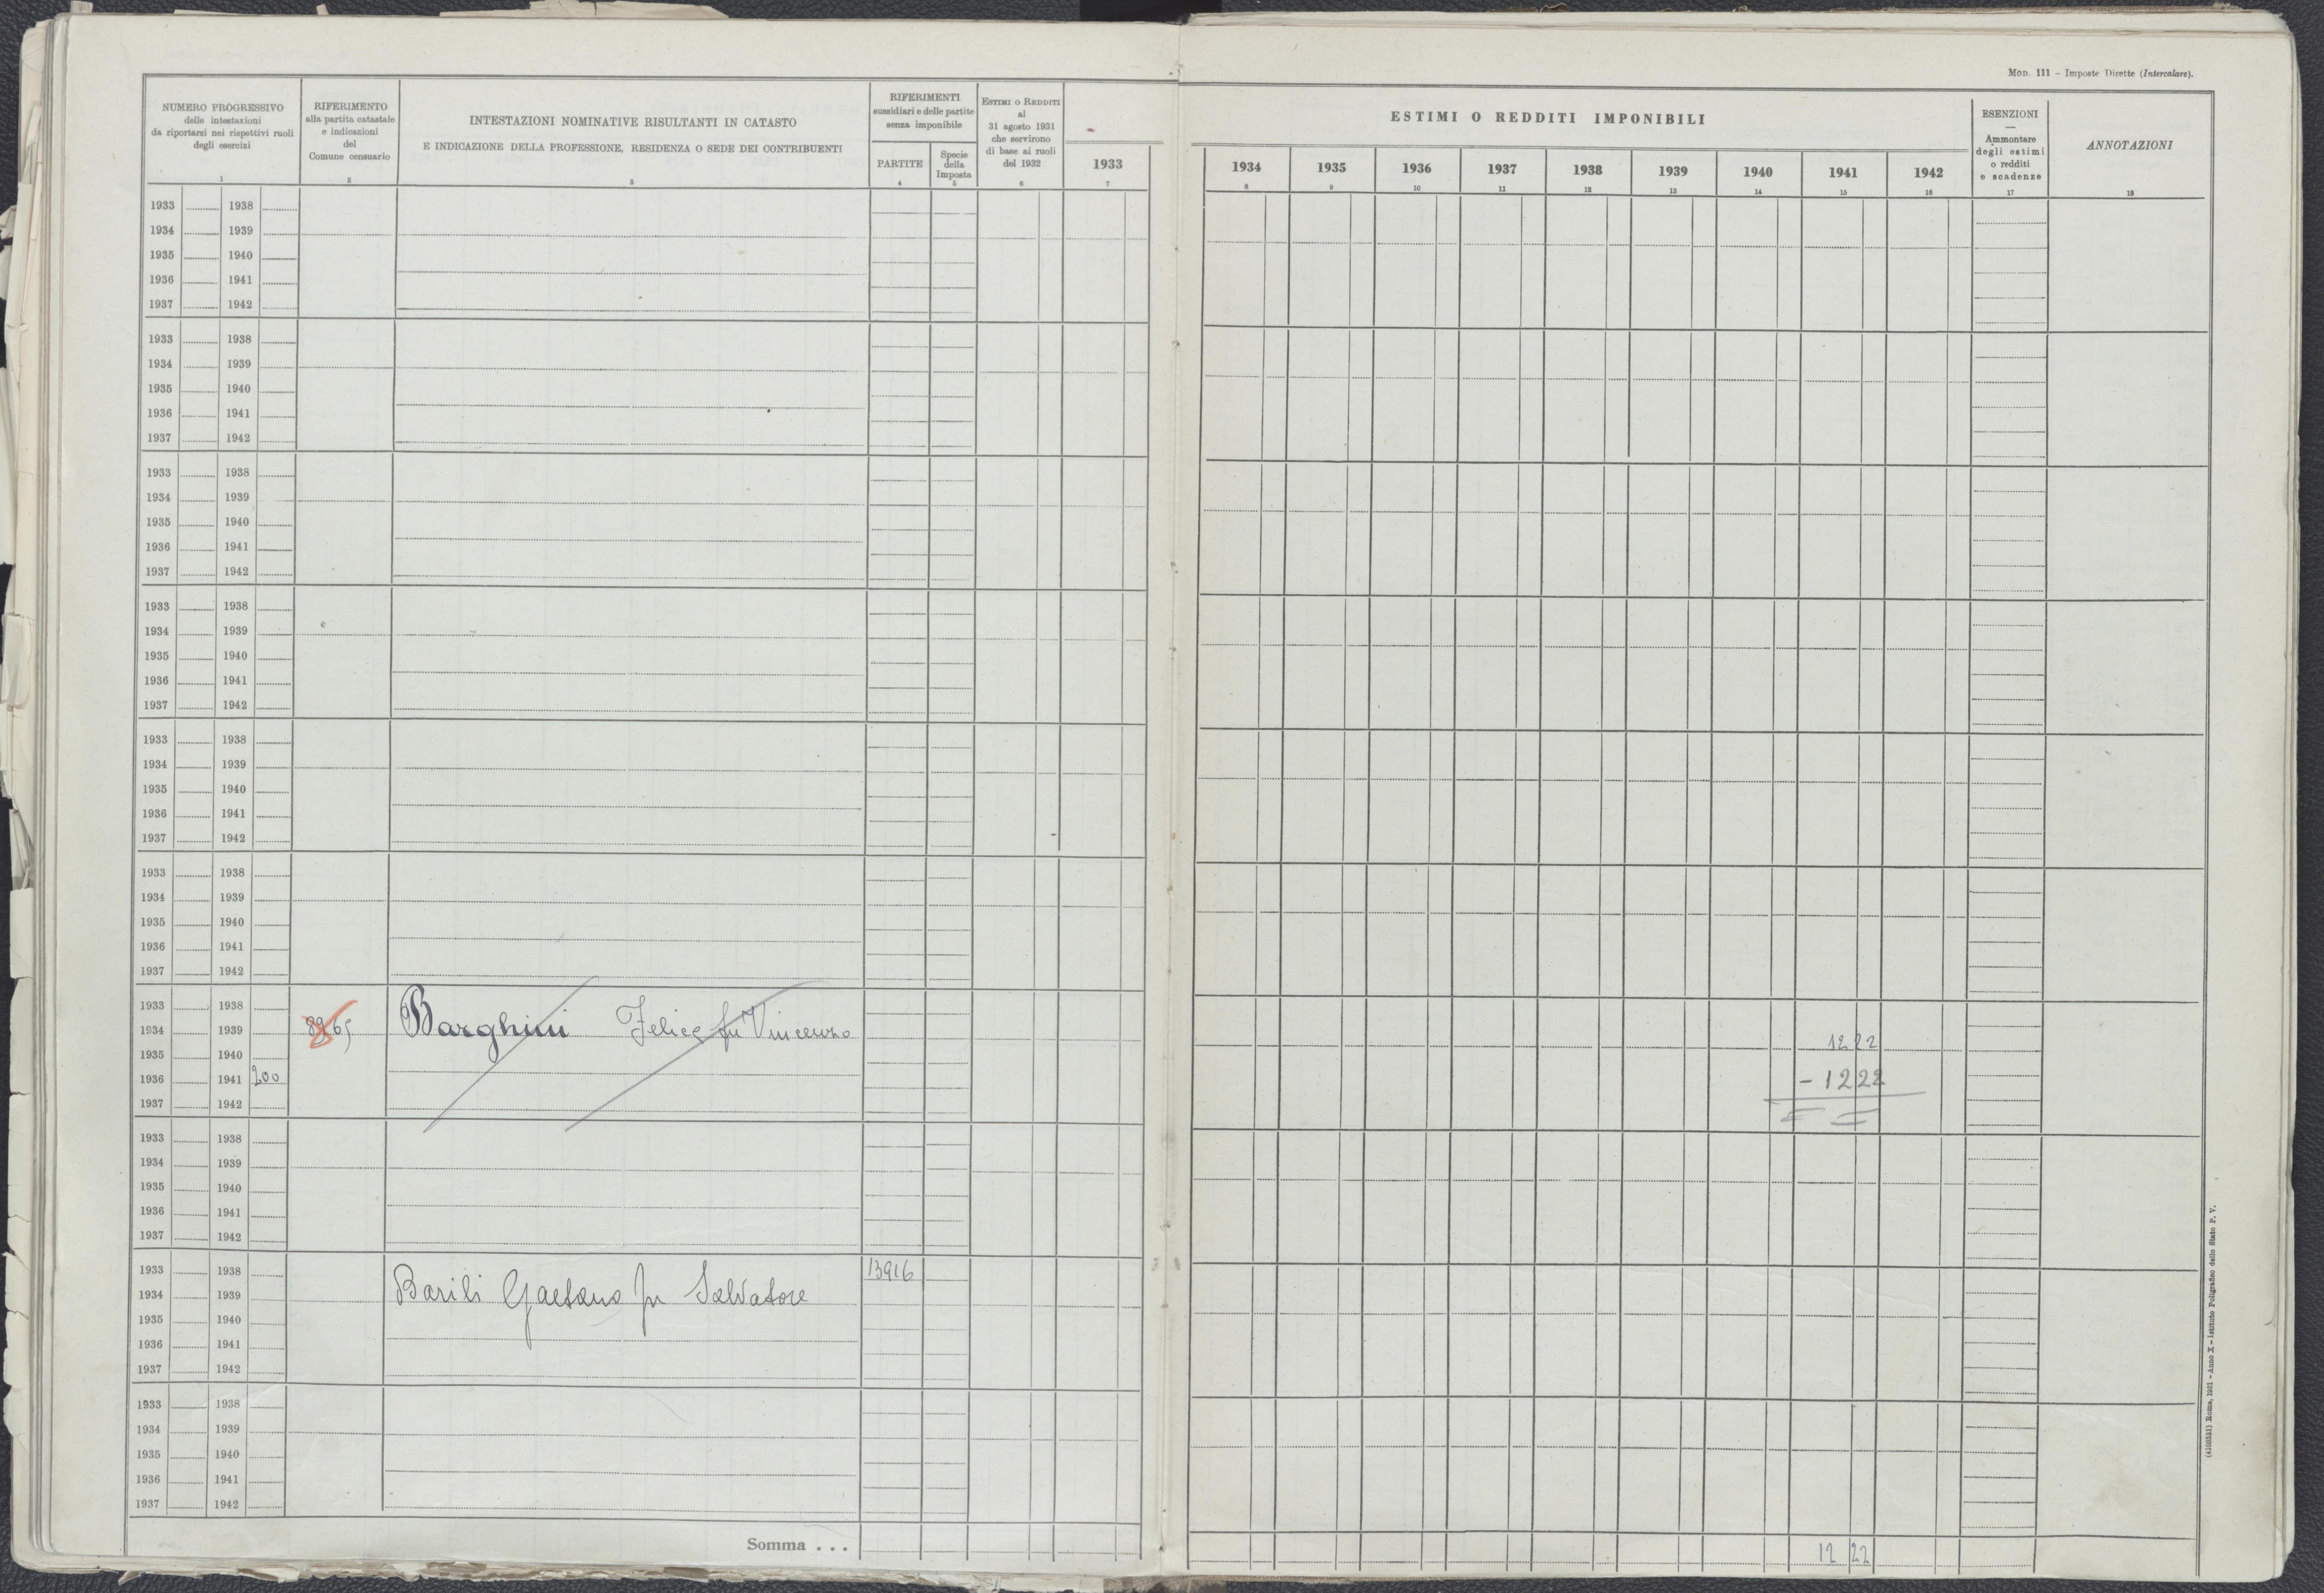 MOD. 111 – Imposte Dirette (Intercalare).
NUMERO PROGRESSIVO
delle intestazioni
da riportarsi nei rispettivi ruoli
degli esercizi
1
RIFERIMENTO
alla partita catastale
e indicazioni
del
Comune censuario
2
INTESTAZIONI NOMINATIVE RISULTANTI IN CATASTO
E INDICAZIONE DELLA PROFESSIONE, RESIDENZA O SEDE DEI CONTRIBUENTI
3
RIFERIMENTI
sussidiari e delle partite
senza imponibile
PARTITE
4
Specie
della
Imposta
5
ESTIMI O REDDITI
al
31 agosto 1931
che servirono
di base ai ruoli
del 1932
6
1933
7
ESTIMI O REDDITI IMPONIBILI
1934 1935 1936 1937 1938 1939 1940 1941 1942
8 9 10 11 12 13 14 15 16
ESENZIONI
—
Ammontare
degli estimi
o redditi
e scadenze
17
ANNOTAZIONI
18
1933 1938
1934 1939
1935 1940
1936 1941
1937 1942
1933 1938
1934 1939
1935 1940
1936 1941
1937 1942
1933 1938
1934 1939
1935 1940
1936 1941
1937 1942
1933 1938
1934 1939
1935 1940
1936 1941
1937 1942
1933 1938
1934 1939
1935 1940
1936 1941
1937 1942
1933 1938
1934 1939
1935 1940
1936 1941
1937 1942
1933 1938
1934 1939 Barghini Felice fu Vincenzo 12 22
1935 1940
1936 1941 200 - 12 22
1937 1942
1933 1938
1934 1939
1935 1940
1936 1941
1937 1942
1933 1938 13916
1934 1939 Barili Gaetano fu Salvatore
1935 1940
1936 1941
1937 1942
1933 1938
1934 1939
1935 1940
1936 1941
1937 1942
Somma . . . 12 22
(4103531) Roma, 1931 – Anno X – Istituto Poligrafico dello Stato P. V.